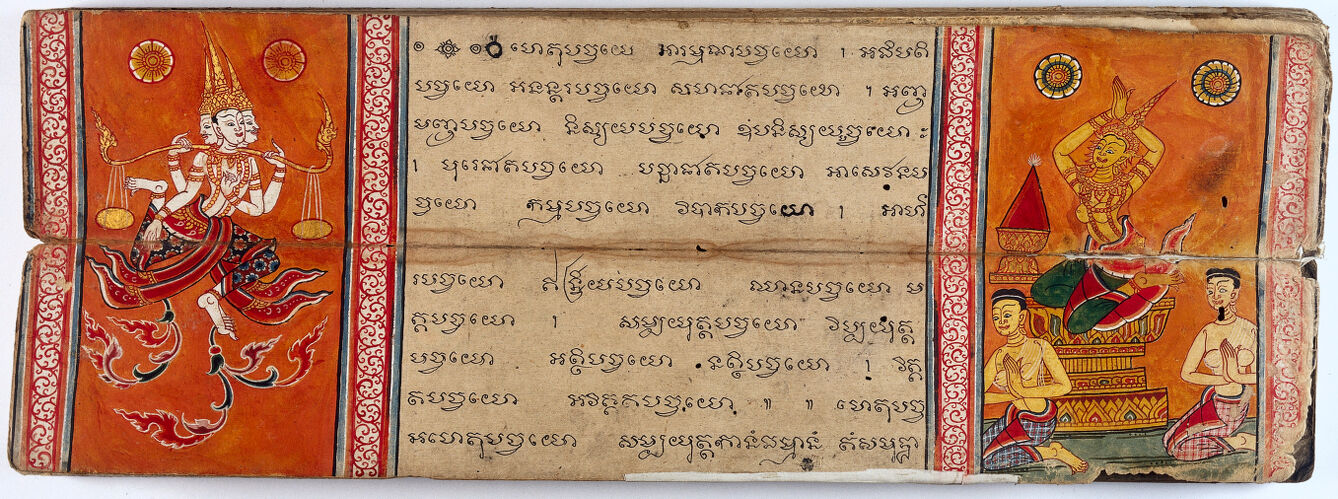 ហេតុបច្ចយោ អារម្មណបច្ចយោ ។ អធិបតិ
បច្ចយោ អនន្តរបច្ចយោ សហជាតបច្ចយោ ។ អញ្ញ
មញ្ញបច្ចយោ និស្សយបច្ចយោ ឧបនិស្សយបច្ចយោ ៈ
។ បុរេជាតបច្ចយោ បច្ឆាជាតបច្ចយោ អាសេវនប
ច្ចយោ កម្មបច្ចយោ វិបាកបច្ចយោ ។ អាហា
របច្ចយោ ឥន្ទ្រិយបច្ចយោ ឈានបច្ចយោ ម
គ្គបច្ចយោ ។ សម្បយុត្តបច្ចយោ វិប្បយុត្ត
បច្ចយោ អត្ថិបច្ចយោ នត្ថិបច្ចយោ ។ វិគ្គ
តបច្ចយោ អវិគ្គតបច្ចយោ ៕ ៕ ហេតុបច្ច
អហេតុបច្ចយោ សម្បយុត្តកានំធម្មានំ តំសមុដ្ឋា